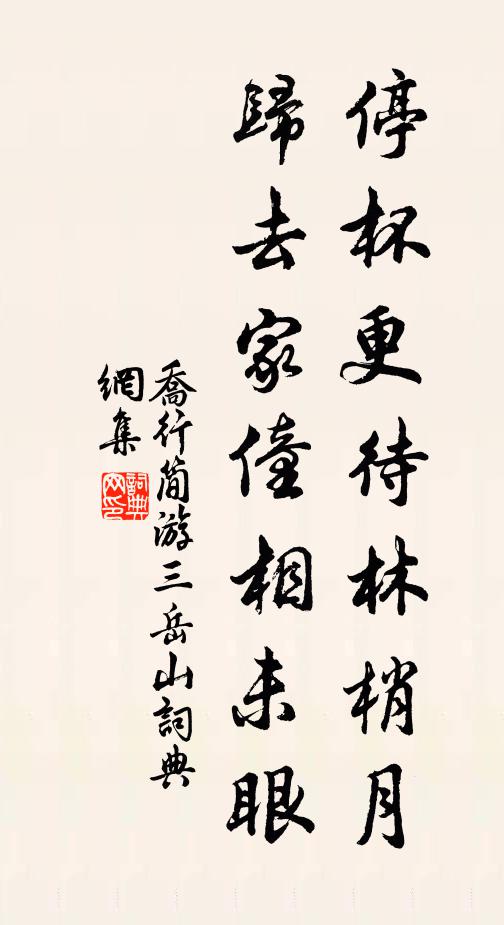 停杯更待林梢月
歸去家僮相未眼
喬行简游三岳山詞典
網集
詞典网印